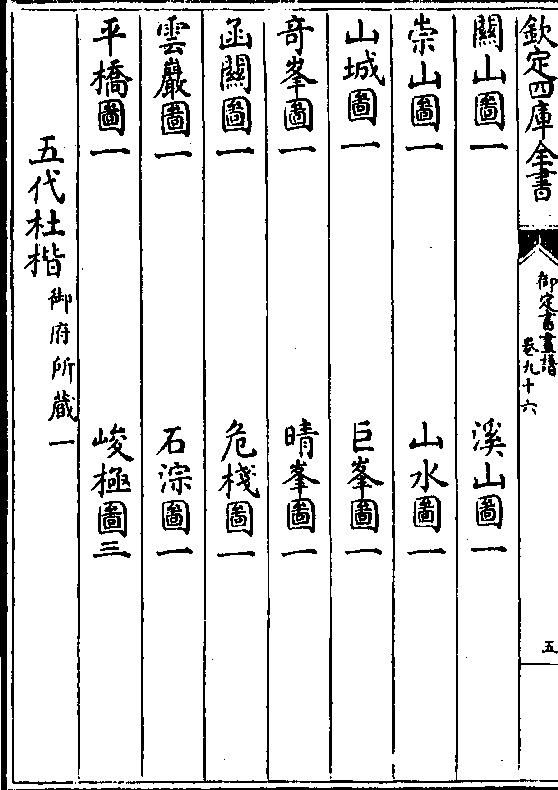 欽定四庫全書
御定書畫譜
卷九十六
五
關山圖一 溪山圖一
崇山圖一 山水圖一
山城圖一 巨峯圖一
竒峯圖一 晴峯圖一
函關圖一 危棧圖一
雲巖圖一 石淙圖一
平橋圖一 峻極圖三
五代杜楷御府所藏一